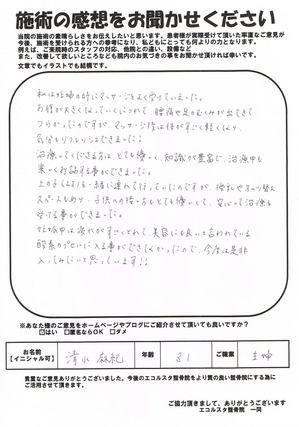 施術の感想をお聞かせください
当院の施術の素晴らしさをお伝えしたいと思います。患者様が実際受けて頂いた率直なご意見が
今後、施術を受けられる方への参考になり、私どもにとっても何よりの力となります。
例えば、ご来院時のスタッフの対応、他院との違い、設備など
また、改善して欲しいところなども院内お気づきの事をお聞かせ頂ければ幸いです。
文章でもイラストでも結構です。
私は妊娠の時にマッサージをよく受けていました。
お腹が大きくなっていくにつれて、腰痛や足のむくみが出てきて
つらかったのですが、マッサージ後は体がすごく軽くなり、
気分もリフレッシュできました!!
治療してくださる方は、とても優しく、知識が豊富で、治療中も
楽しくお話する事ができました。
上の子(2才)も一緒に連れて行っていたのですが、授乳やオムツ替え
スペースもあり、子供への接し方もとても優しくて、安心して治療を
受ける事ができました。
妊娠中は疲れがすごくとれて、美容にも良いと言われている
酸素カプセルに入る事ができなかったので、今度は是非
入ってみたいと思っています!!
※あなた様のご意見をホームページやブログにご紹介させて頂いても良いですか?
☑はい □匿名ならOK □ダメ
お名前
【イニシャル可】
清水 麻紀
年齢
31
ご職業
主婦
貴重なご意見ありがとうございました。今後のエコルスタ整骨院をより質の良い整骨院にする為に
ご活用させて頂きます。
ご協力頂きまして、ありがとうございます
エコルスタ整骨院 一同